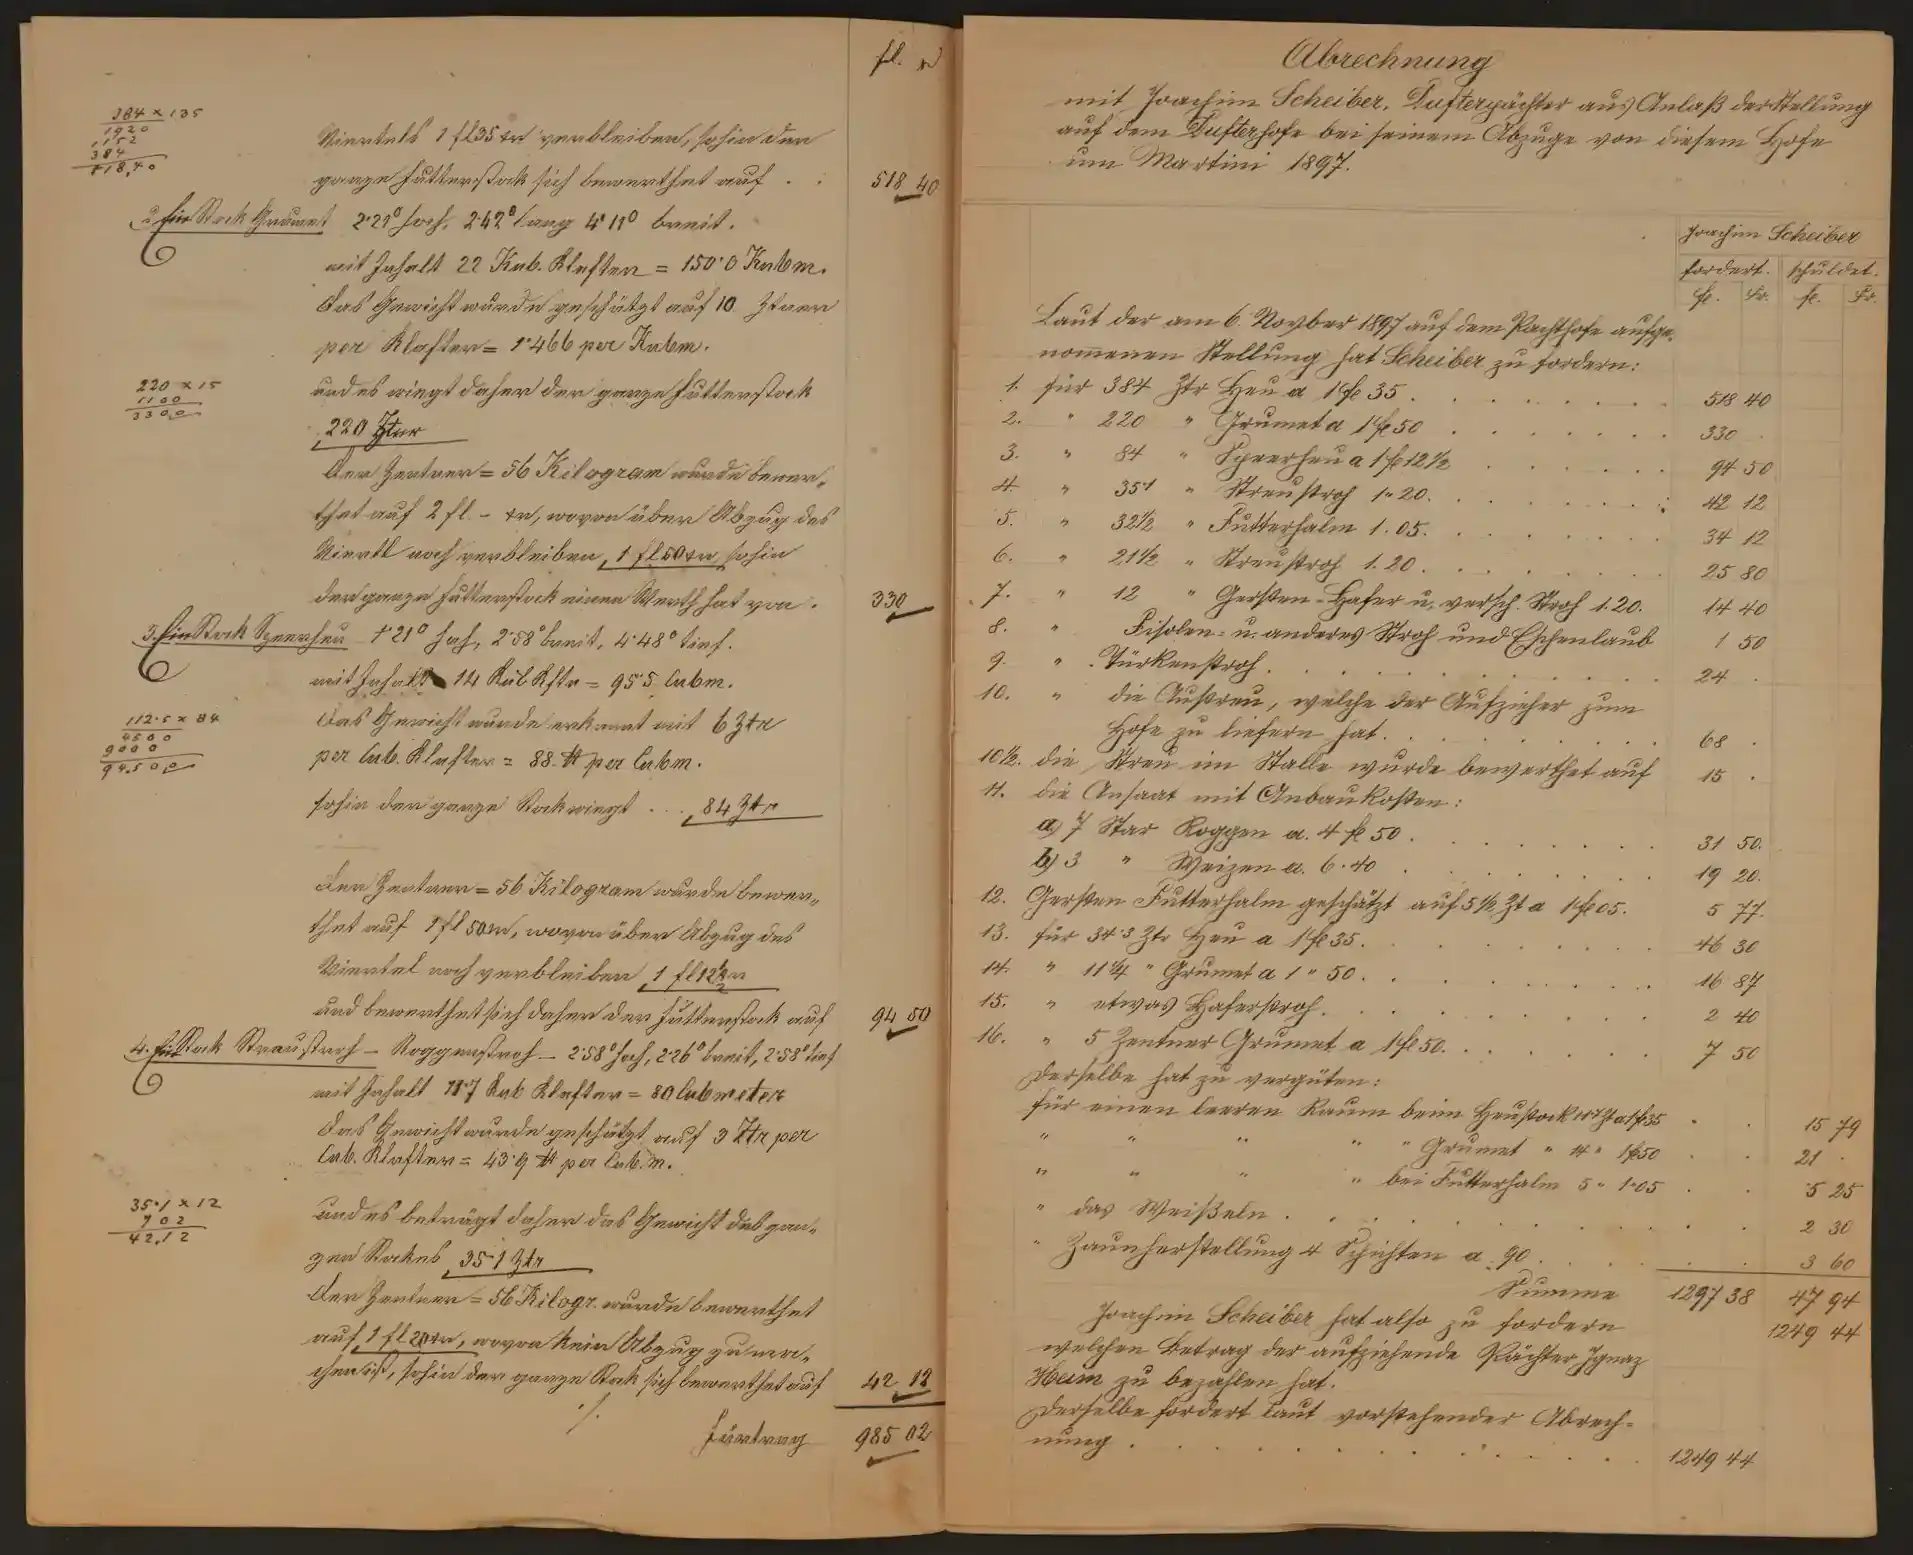 fl. kr
384 x 135
1920
1152
384
518,40
Viertels 1 fl 35 kr verbleiben, sohin der
ganze Futterstock sich bewerthet auf . . 518 40
2. Ein Stock Grummet 2·21° hoch, 2·42° lang 4·11° breit.
mit Inhalt 22 Kub. Klafter = 150·0 Kubm.
Das Gewicht wurde geschätzt auf 10 Ztner
per Klafter = 1·466 per Kubm.
220 x 15
1100
330,0
und es wiegt daher der ganze Futterstock
220 Ztner
Der Zentner = 56 Kilogram wurde bewer-
thet auf 2 fl – kr, wovon über Abzug des
Viertl noch verbleiben 1 fl 50 kr, sohin
der ganze Futterstock einen Werth hat von . 330
3. Ein Stock Speerheu 1·21° hoch, 2·58° breit, 4·48° tief.
mit Inhalt 14 Kub Kftr = 95·5 Cubm.
112·5 x 84
4500
9000
94,500
Das Gewicht wurde erkannt mit 6 Ztr
per Cub. Klafter = 88 ℔ per Cubm.
sohin der ganze Stock wiegt . . . 84 Ztr
Der Zentner = 56 Kilogram wurde bewer-
thet auf 1 fl 50 kr, wovon über Abzug des
Viertel noch verbleiben 1 fl 12 1/2 kr
und bewerthet sich daher der Futterstock auf 94 50
4. Ein Stock Straustroh – Roggenstroh – 2·58° hoch, 2·26° breit, 2·58° tief
mit Inhalt 11·7 Kub Klafter = 80 Cubmeter
Das Gewicht wurde geschätzt auf 3 Ztr per
Cub. Klafter = 43·9 ℔ per Cub.m.
35·1 x 12
702
42,12
und es beträgt daher das Gewicht des gan-
zen Stockes 35·1 Ztr
Der Zentner = 56 Kilogr. wurde bewerthet
auf 1 fl 20 kr, wovon kein Abzug zu ma-
chen ist, sohin der ganze Stock sich bewerthet auf 42 12
./.
Fürtrag 985 02
Abrechnung
mit Joachim Scheiber, Dufterpächter aus Anlaß der Stellung
auf dem Dufterhofe bei seinem Abzuge von diesem Hofe
um Martini 1897.
Joachim Scheiber
fordert. schuldet.
fl. Kr. fl. Kr.
Laut der am 6. Novber 1897 auf dem Pachthofe aufge-
nommenen Stellung hat Scheiber zu fordern:
1. für 384 Ztr Heu a 1 fl 35 . . . 518 40
2. " 220 " Grumet a 1 fl 50 . . . 330 .
3. " 84 " Speerheu a 1 fl 12 1/2 . . . 94 50
4. " 35·1 " Streustroh 1 " 20. . . . 42 12
5. " 32 1/2 " Futterhalm 1.05. . . . 34 12
6. " 21 1/2 " Streustroh 1.20. . . . 25 80
7. " 12 " Gersten Hafer u. versch. Stroh 1.20. 14 40
8. " Fisolen- u. anderes Stroh und Eschenlaub 1 50
9. " Türkenstroh. . . . 24 .
10. " die Austreu, welche der Aufzieher zum
Hofe zu liefern hat. . . . 68 .
10 1/2. die Streu im Stalle wurde bewerthet auf 15 .
11. die Ansaat mit Anbaukosten:
a) 7 Star Roggen a. 4 fl 50 . . . 31 50.
b) 3 " Weizen a. 6.40 . . . 19 20.
12. Gersten Futterhalm geschätzt auf 5 1/2 Zt a 1 fl 05. 5 77.
13. für 34·3 Ztr Heu a 1 fl 35. . . . 46 30
14. " 11 1/4 " Grumet a 1 " 50. . . . 16 87
15. " etwas Haferstroh. . . . 2 40
16. " 5 Zentner Grumet a 1 fl 50. . . . 7 50
Derselbe hat zu vergüten:
für einen leeren Raum beim Heustock 11·7 Zt a 1 fl 35 . . 15 79
" " " " " Grumet " 14 " 1 fl 50 . . 21 .
" " " " bei Futterhalm 5 " 1·05 . . 5 25
" das Weißeln . . . 2 30
" Zaunherstellung 4 Schichten a . 90 . . . 3 60
Summe 1297 38 47 94
Joachim Scheiber hat also zu fordern 1249 44
welchen Betrag der aufziehende Pächter Ignaz
Heim zu bezahlen hat.
Derselbe fordert laut vorstehender Abrech-
nung . . . 1249 44